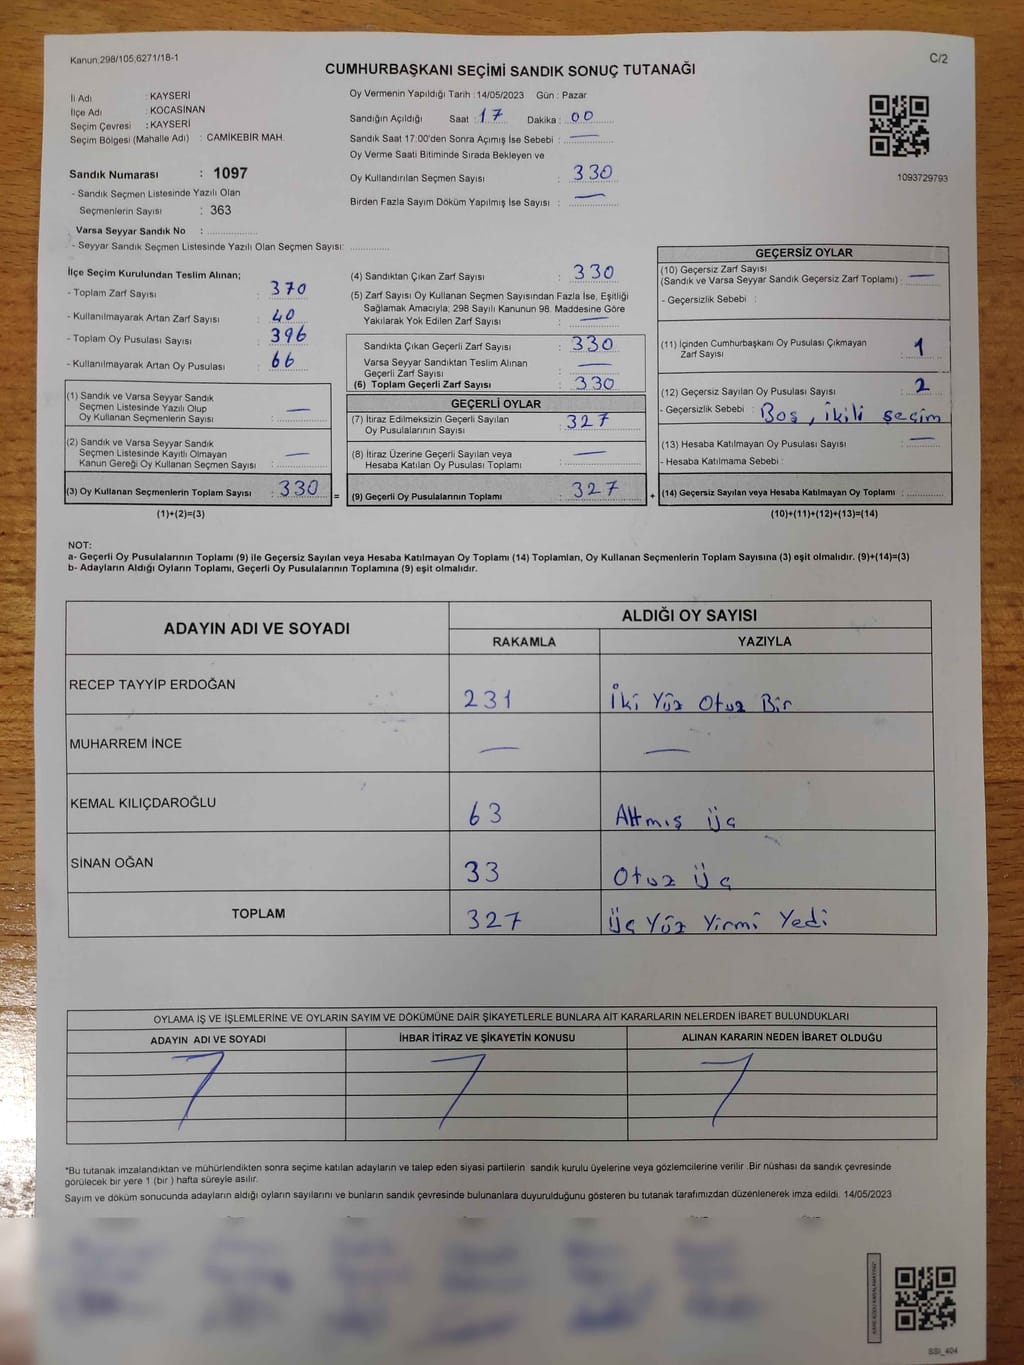 Kanun:298/105;6271/18-1
C/2
CUMHURBAŞKANI SEÇİMİ SANDIK SONUÇ TUTANAĞI
İl Adı : KAYSERİ
İlçe Adı : KOCASİNAN
Seçim Çevresi : KAYSERİ
Seçim Bölgesi (Mahalle Adı) : CAMİKEBİR MAH.
Sandık Numarası : 1097
- Sandık Seçmen Listesinde Yazılı Olan
Seçmenlerin Sayısı : 363
Varsa Seyyar Sandık No : ..................
- Seyyar Sandık Seçmen Listesinde Yazılı Olan Seçmen Sayısı: ..............
Oy Vermenin Yapıldığı Tarih : 14/05/2023 Gün : Pazar
Sandığın Açıldığı Saat : 17 Dakika : 00
Sandık Saat 17:00'den Sonra Açımış İse Sebebi : —
Oy Verme Saati Bitiminde Sırada Bekleyen ve
Oy Kullandırılan Seçmen Sayısı : 330
Birden Fazla Sayım Döküm Yapılmış İse Sayısı : —
1093729793
İlçe Seçim Kurulundan Teslim Alınan;
- Toplam Zarf Sayısı : 370
- Kullanılmayarak Artan Zarf Sayısı : 40
- Toplam Oy Pusulası Sayısı : 396
- Kullanılmayarak Artan Oy Pusulası : 66
(1) Sandık ve Varsa Seyyar Sandık
Seçmen Listesinde Yazılı Olup
Oy Kullanan Seçmenlerin Sayısı : —
(2) Sandık ve Varsa Seyyar Sandık
Seçmen Listesinde Kayıtlı Olmayan
Kanun Gereği Oy Kullanan Seçmen Sayısı : —
(3) Oy Kullanan Seçmenlerin Toplam Sayısı : 330
(1)+(2)=(3)
(4) Sandıktan Çıkan Zarf Sayısı : 330
(5) Zarf Sayısı Oy Kullanan Seçmen Sayısından Fazla İse, Eşitliği
Sağlamak Amacıyla; 298 Sayılı Kanunun 98. Maddesine Göre
Yakılarak Yok Edilen Zarf Sayısı : —
Sandıkta Çıkan Geçerli Zarf Sayısı : 330
Varsa Seyyar Sandıktan Teslim Alınan
Geçerli Zarf Sayısı : —
(6) Toplam Geçerli Zarf Sayısı : 330
GEÇERLİ OYLAR
(7) İtiraz Edilmeksizin Geçerli Sayılan
Oy Pusulalarının Sayısı : 327
(8) İtiraz Üzerine Geçerli Sayılan veya
Hesaba Katılan Oy Pusulası Toplamı : —
= (9) Geçerli Oy Pusulalarının Toplamı : 327 +
GEÇERSİZ OYLAR
(10) Geçersiz Zarf Sayısı
(Sandık ve Varsa Seyyar Sandık Geçersiz Zarf Toplamı) : —
- Geçersizlik Sebebi :
(11) İçinden Cumhurbaşkanı Oy Pusulası Çıkmayan
Zarf Sayısı : 1
(12) Geçersiz Sayılan Oy Pusulası Sayısı : 2
- Geçersizlik Sebebi : Boş, ikili seçim
(13) Hesaba Katılmayan Oy Pusulası Sayısı : —
- Hesaba Katılmama Sebebi :
(14) Geçersiz Sayılan veya Hesaba Katılmayan Oy Toplamı : ............
(10)+(11)+(12)+(13)=(14)
NOT:
a- Geçerli Oy Pusulalarının Toplamı (9) ile Geçersiz Sayılan veya Hesaba Katılmayan Oy Toplamı (14) Toplamları, Oy Kullanan Seçmenlerin Toplam Sayısına (3) eşit olmalıdır. (9)+(14)=(3)
b- Adayların Aldığı Oyların Toplamı, Geçerli Oy Pusulalarının Toplamına (9) eşit olmalıdır.
ADAYIN ADI VE SOYADI ALDIĞI OY SAYISI
RAKAMLA YAZIYLA
RECEP TAYYİP ERDOĞAN 231 İki Yüz Otuz Bir
MUHARREM İNCE — —
KEMAL KILIÇDAROĞLU 63 Altmış Üç
SİNAN OĞAN 33 Otuz Üç
TOPLAM 327 Üç Yüz Yirmi Yedi
OYLAMA İŞ VE İŞLEMLERİNE VE OYLARIN SAYIM VE DÖKÜMÜNE DAİR ŞİKAYETLERLE BUNLARA AİT KARARLARIN NELERDEN İBARET BULUNDUKLARI
ADAYIN ADI VE SOYADI İHBAR İTİRAZ VE ŞİKAYETİN KONUSU ALINAN KARARIN NEDEN İBARET OLDUĞU
*Bu tutanak imzalandıktan ve mühürlendikten sonra seçime katılan adayların ve talep eden siyasi partilerin sandık kurulu üyelerine veya gözlemcilerine verilir .Bir nüshası da sandık çevresinde
görülecek bir yere 1 (bir ) hafta süreyle asılır.
Sayım ve döküm sonucunda adayların aldığı oyların sayılarını ve bunların sandık çevresinde bulunanlara duyurulduğunu gösteren bu tutanak tarafımızdan düzenlenerek imza edildi. 14/05/2023
SSI_404